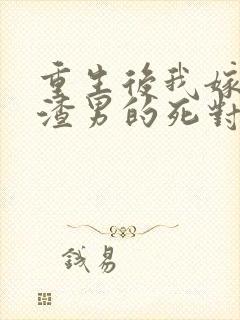 重生後我嫁
渣男的死對
錢易